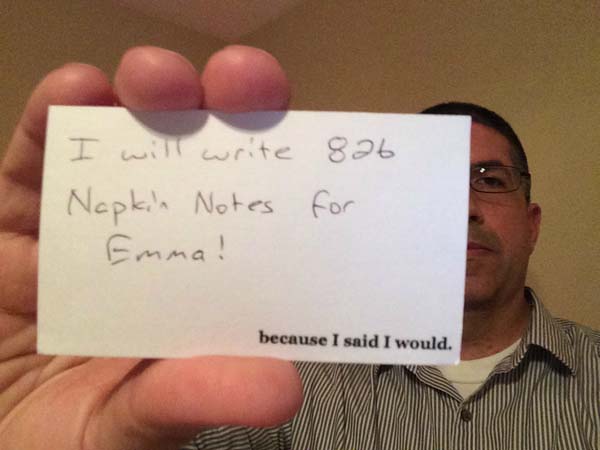 I will write 826
Napkin Notes for
Emma!
because I said I would.